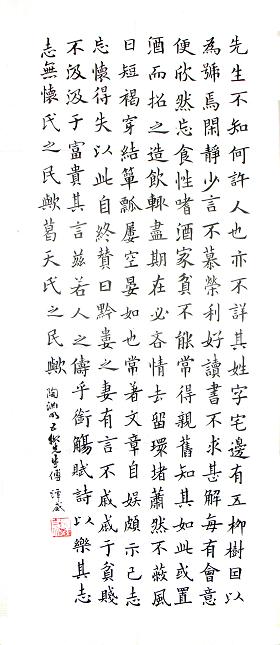 先生不知何許人也亦不詳其姓字宅邊有五柳樹囙以
為號焉閑靜少言不慕榮利好讀書不求甚解每有會意
便欣然忘食性嗜酒家貧不能常得親舊知其如此或置
酒而招之造飲輒盡期在必吝情去留環堵蕭然不蔽風
日短褐穿結簞瓢屢空晏如也常著文章自娛頗示己志
忘懷得失以此自終贊曰黔婁之妻有言不戚戚于貧賤
不汲汲于富貴其言茲若人之儔乎銜觴賦詩以樂其志
志無懷氏之民歟葛天氏之民歟
陶渊明五柳先生傳